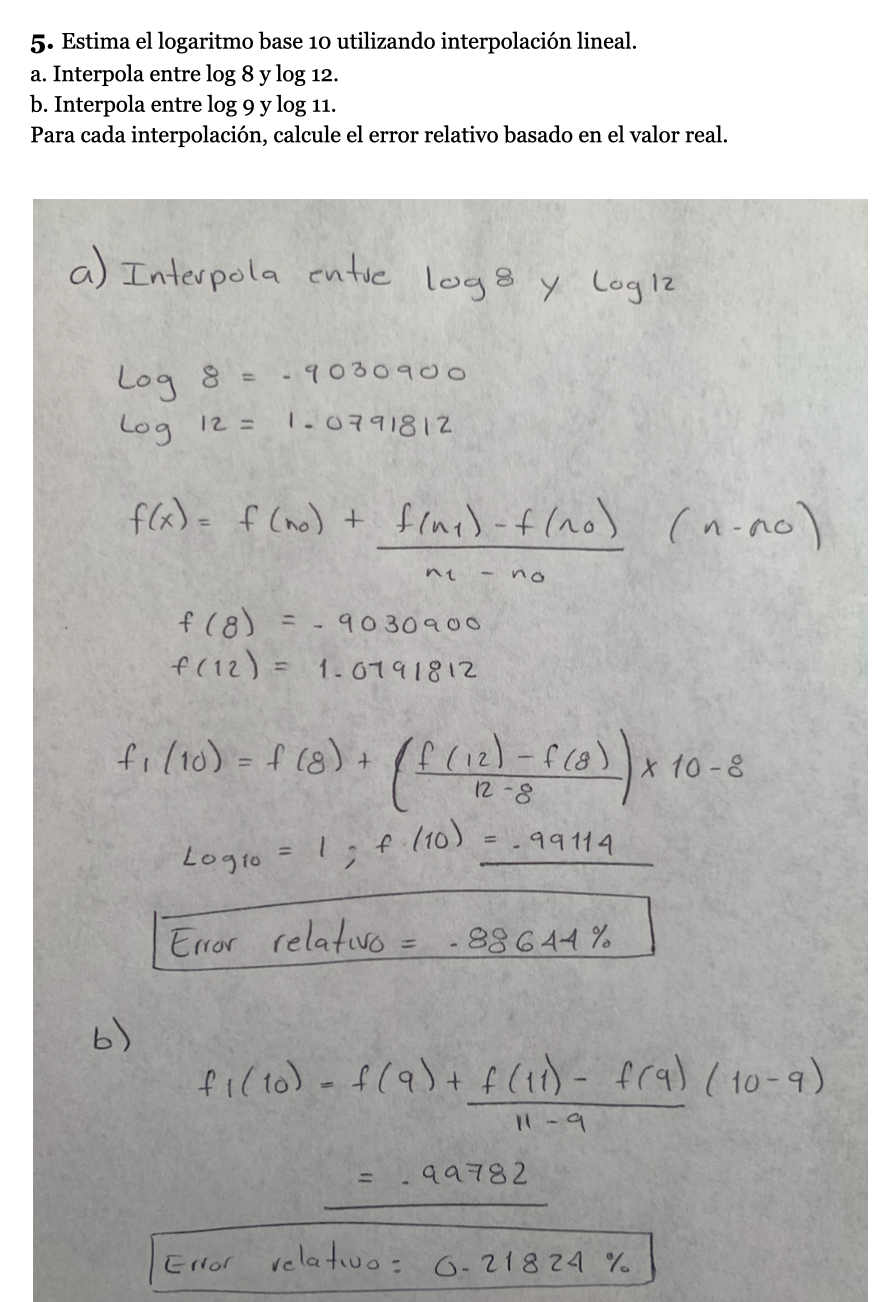 5. Estima el logaritmo base 10 utilizando interpolación lineal.
a. Interpola entre log 8 y log 12.
b. Interpola entre log 9 y log 11.
Para cada interpolación, calcule el error relativo basado en el valor real.
a) Interpola entre log 8 y Log 12
Log 8 = .9030900
Log 12 = 1.0791812
f(x) = f(n0) + f(n1) - f(n0) (n - n0)
n1 - n0
f(8) = .9030900
f(12) = 1.0791812
f1(10) = f(8) + (f(12) - f(8)) x 10 - 8
12 - 8
Log10 = 1 ; f(10) = .99114
Error relativo = .88644 %
b)
f1(10) = f(9) + f(11) - f(9) (10 - 9)
11 - 9
= .99782
Error relativo = 0.21824 %